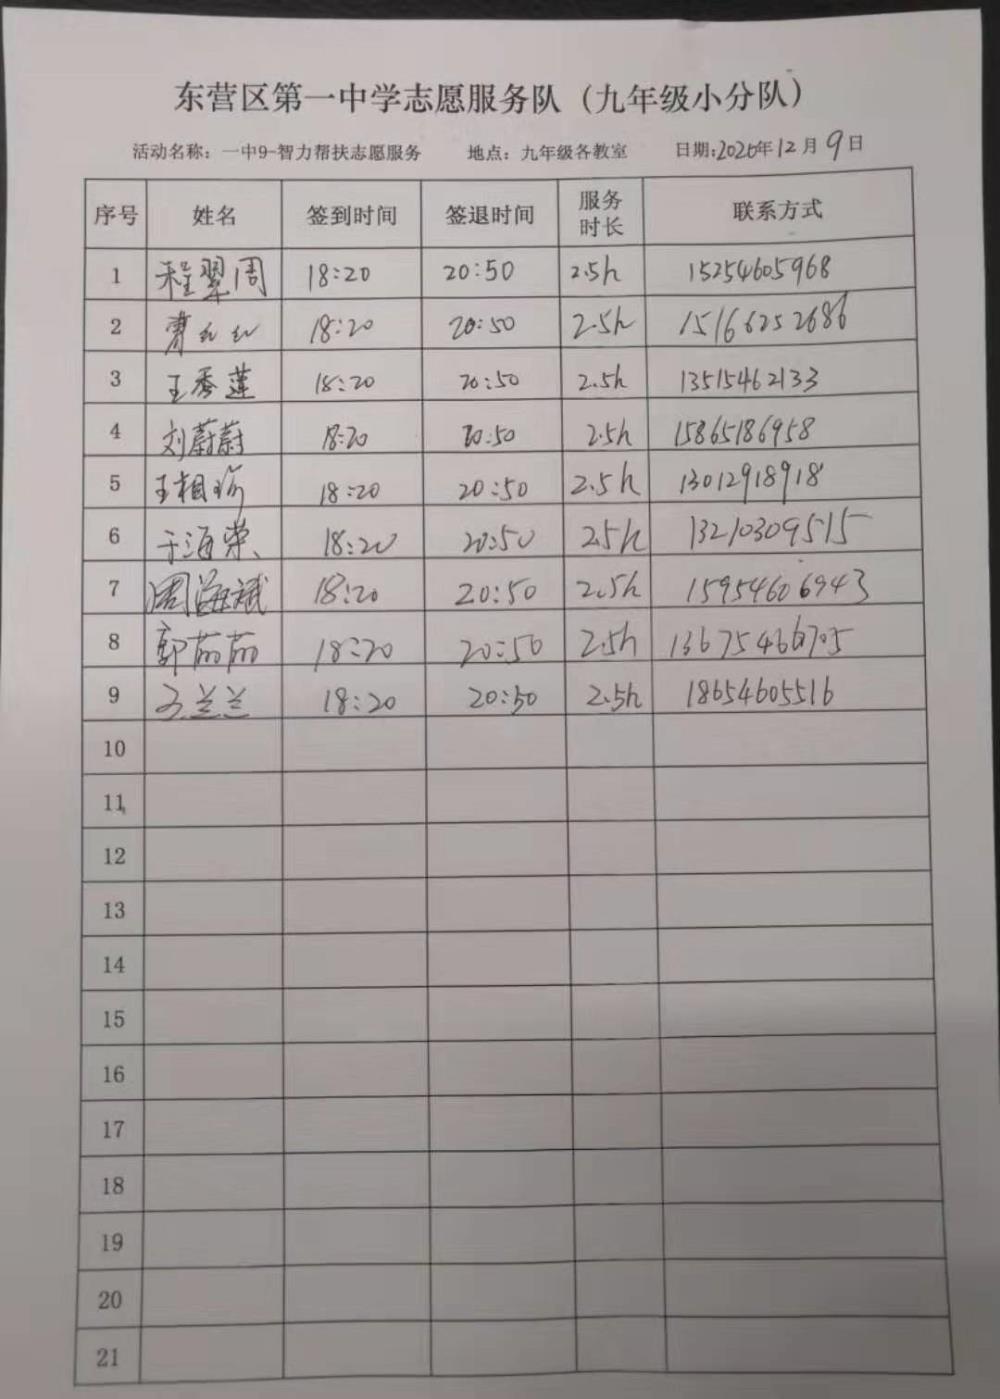 东营区第一中学志愿服务队（九年级小分队）
活动名称：一中9-智力帮扶志愿服务 地点：九年级各教室 日期：2020年12月9日
序号 姓名 签到时间 签退时间 服务时长 联系方式
1 程翠周 18:20 20:50 2.5h 15254605968
2 曹红红 18:20 20:50 2.5h 15166252686
3 王秀莲 18:20 20:50 2.5h 13515462133
4 刘蔚蔚 18:20 20:50 2.5h 15865186958
5 王相 18:20 20:50 2.5h 13012918918
6 于海荣 18:20 20:50 2.5h 13210309515
7 周海斌 18:20 20:50 2.5h 15954606943
8 郭丽丽 18:20 20:50 2.5h 13675466705
9 兰兰 18:20 20:50 2.5h 18654605516
10
11
12
13
14
15
16
17
18
19
20
21